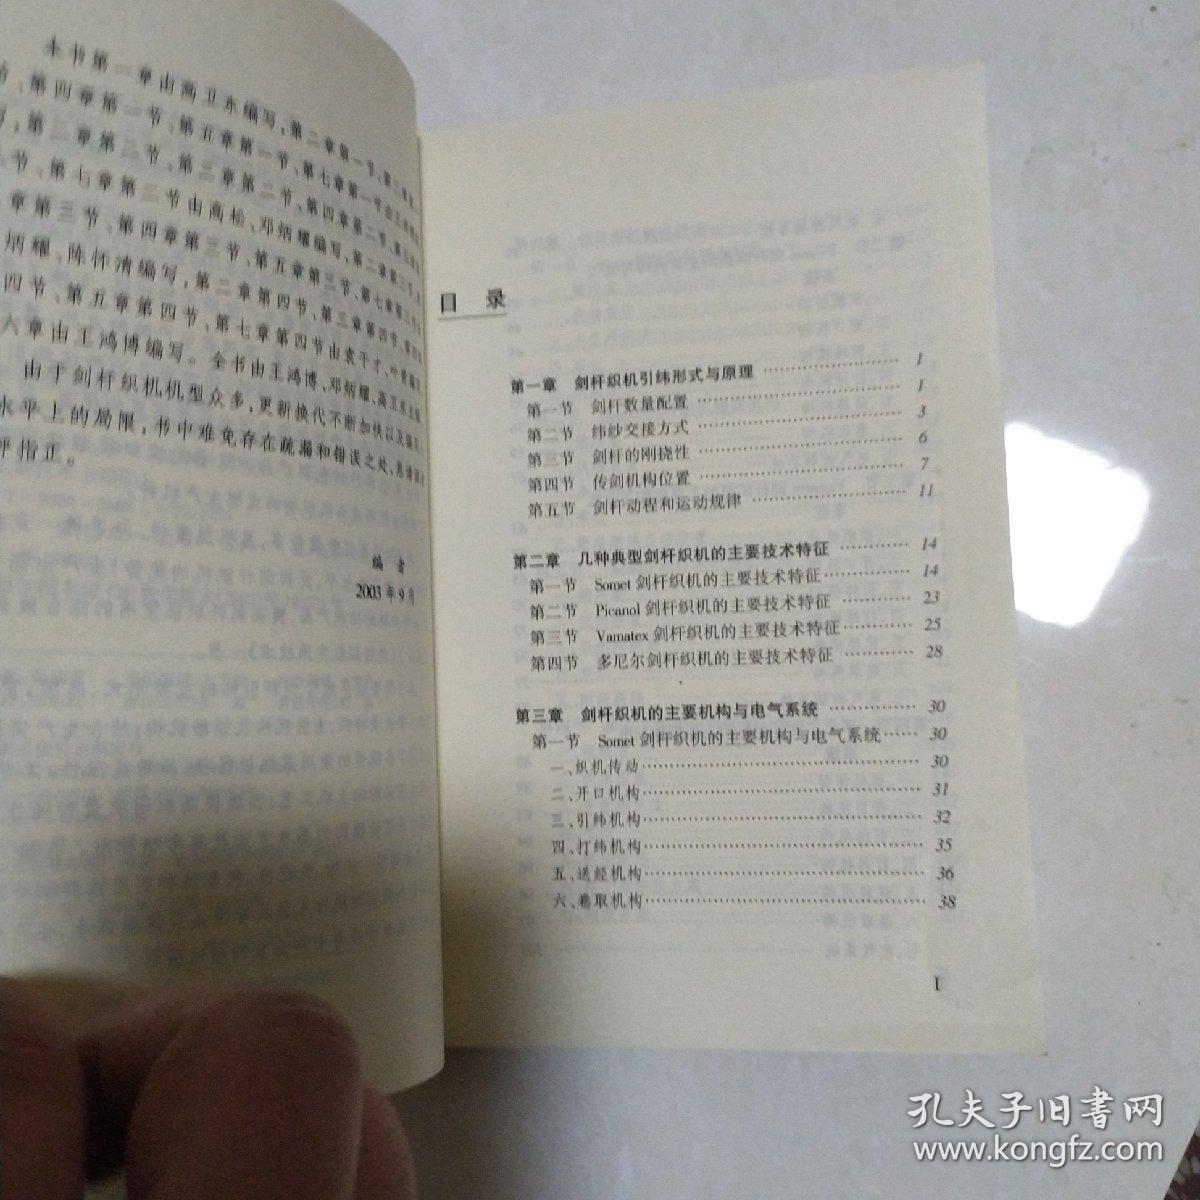 本书第一章由高卫东编写,第二章第一节、第三章第
节、第四章第一节、第五章第一节、第七章第一节由王鸿博
第二章第二节、第三章第二节、第四章第二节、第五章第
节、第七章第二节由高松、邓炳耀编写,第二章第三节、
章第三节、第四章第三节、第五章第三节、第七章第三节
炳耀、陈怀清编写,第二章第四节、第三章第四节、第四章
四节、第五章第四节、第七章第四节由袁干才、叶
六章由王鸿博编写。全书由王鸿博、邓炳耀、高卫东
由于剑杆织机机型众多,更新换代不断加快以及编写
水平上的局限,书中难免存在疏漏和错误之处,恳请读者
评指正。
编 者
2003年9月
目 录
第一章 剑杆织机引纬形式与原理 …… 1
第一节 剑杆数量配置 …… 1
第二节 纬纱交接方式 …… 3
第三节 剑杆的刚挠性 …… 6
第四节 传剑机构位置 …… 7
第五节 剑杆动程和运动规律 …… 11
第二章 几种典型剑杆织机的主要技术特征 …… 14
第一节 Somet剑杆织机的主要技术特征 …… 14
第二节 Picanol剑杆织机的主要技术特征 …… 23
第三节 Vamatex剑杆织机的主要技术特征 …… 25
第四节 多尼尔剑杆织机的主要技术特征 …… 28
第三章 剑杆织机的主要机构与电气系统 …… 30
第一节 Somet剑杆织机的主要机构与电气系统 …… 30
一、织机传动 …… 30
二、开口机构 …… 31
三、引纬机构 …… 32
四、打纬机构 …… 35
五、送经机构 …… 36
六、卷取机构 …… 38
I
孔夫子旧书网
www.kongfz.com